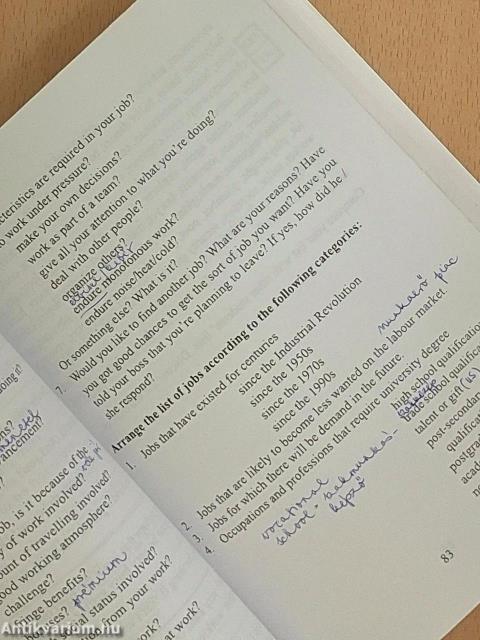 cteristics are required in your job?
o work under pressure?
make your own decisions?
work as part of a team?
give all your attention to what you're doing?
deal with other people?
organize others?
endure monotonous work?
endure noise/heat/cold?
Or something else? What is it?
7. Would you like to find another job? What are your reasons? Have
you got good chances to get the sort of job you want? Have you
told your boss that you're planning to leave? If yes, how did he /
she respond?
Arrange the list of jobs according to the following categories:
1. Jobs that have existed for centuries
since the Industrial Revolution
since the 1950s
since the 1970s
since the 1990s
munkaerő piac
2. Jobs that are likely to become less wanted on the labour market.
3. Jobs for which there will be demand in the future.
4. Occupations and professions that require university degree
high school qualification
trade school qualification
talent or gift (is)
post-secondary
qualifica
postgrad
acad
no
vocational
school - szakmunkás-
képző
83
oing it?
ons?
vancement?
ob, is it because of the
y of work involved?
ount of travelling involved?
ood working atmosphere?
challenge?
nge benefits?
uses?
premium
social status involved?
from your work?
work?
at work?
Antikvarium.hu